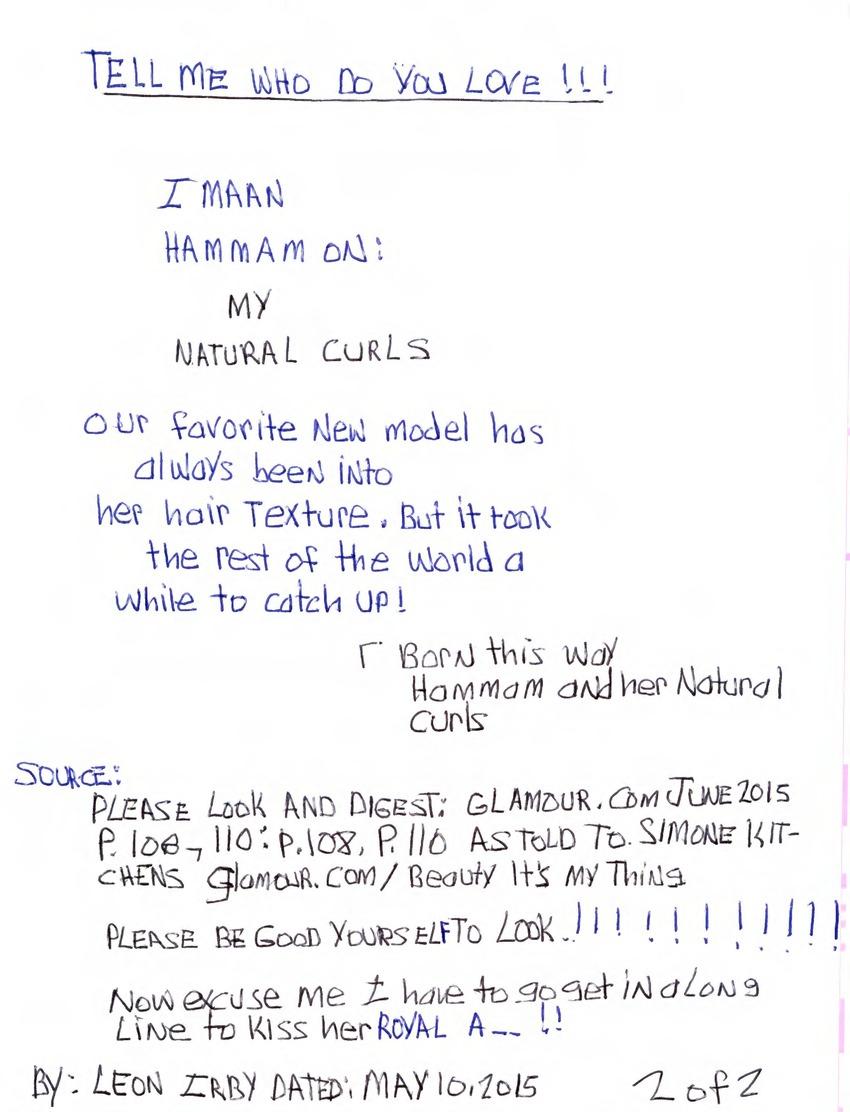 TELL ME WHO DO YOU LOVE !!!
IMAAN
HAMMAM ON:
MY
NATURAL CURLS
OUR favorite NEW model has
always been iNto
her hair Texture. But it took
the rest of the world a
while to catch UP!
Γ BORN this way
Hammam and her Natural
Curls
SOURCE:
PLEASE LOOK AND DIGEST: GLAMOUR.COM JUNE 2015
P. 108-, 110: P.108, P. 110 AS TOLD TO. SIMONE KIT-
CHENS Glamour.com/Beauty It's My Thing
PLEASE BE GOOD YOURSELF TO LOOK..!!!!!!!!!!!
Now excuse me I have to go get iN a LONg
LiNe to kiss her ROYAL A__ !!
BY: LEON IRBY DATED: MAY 10, 2015 2 of 2